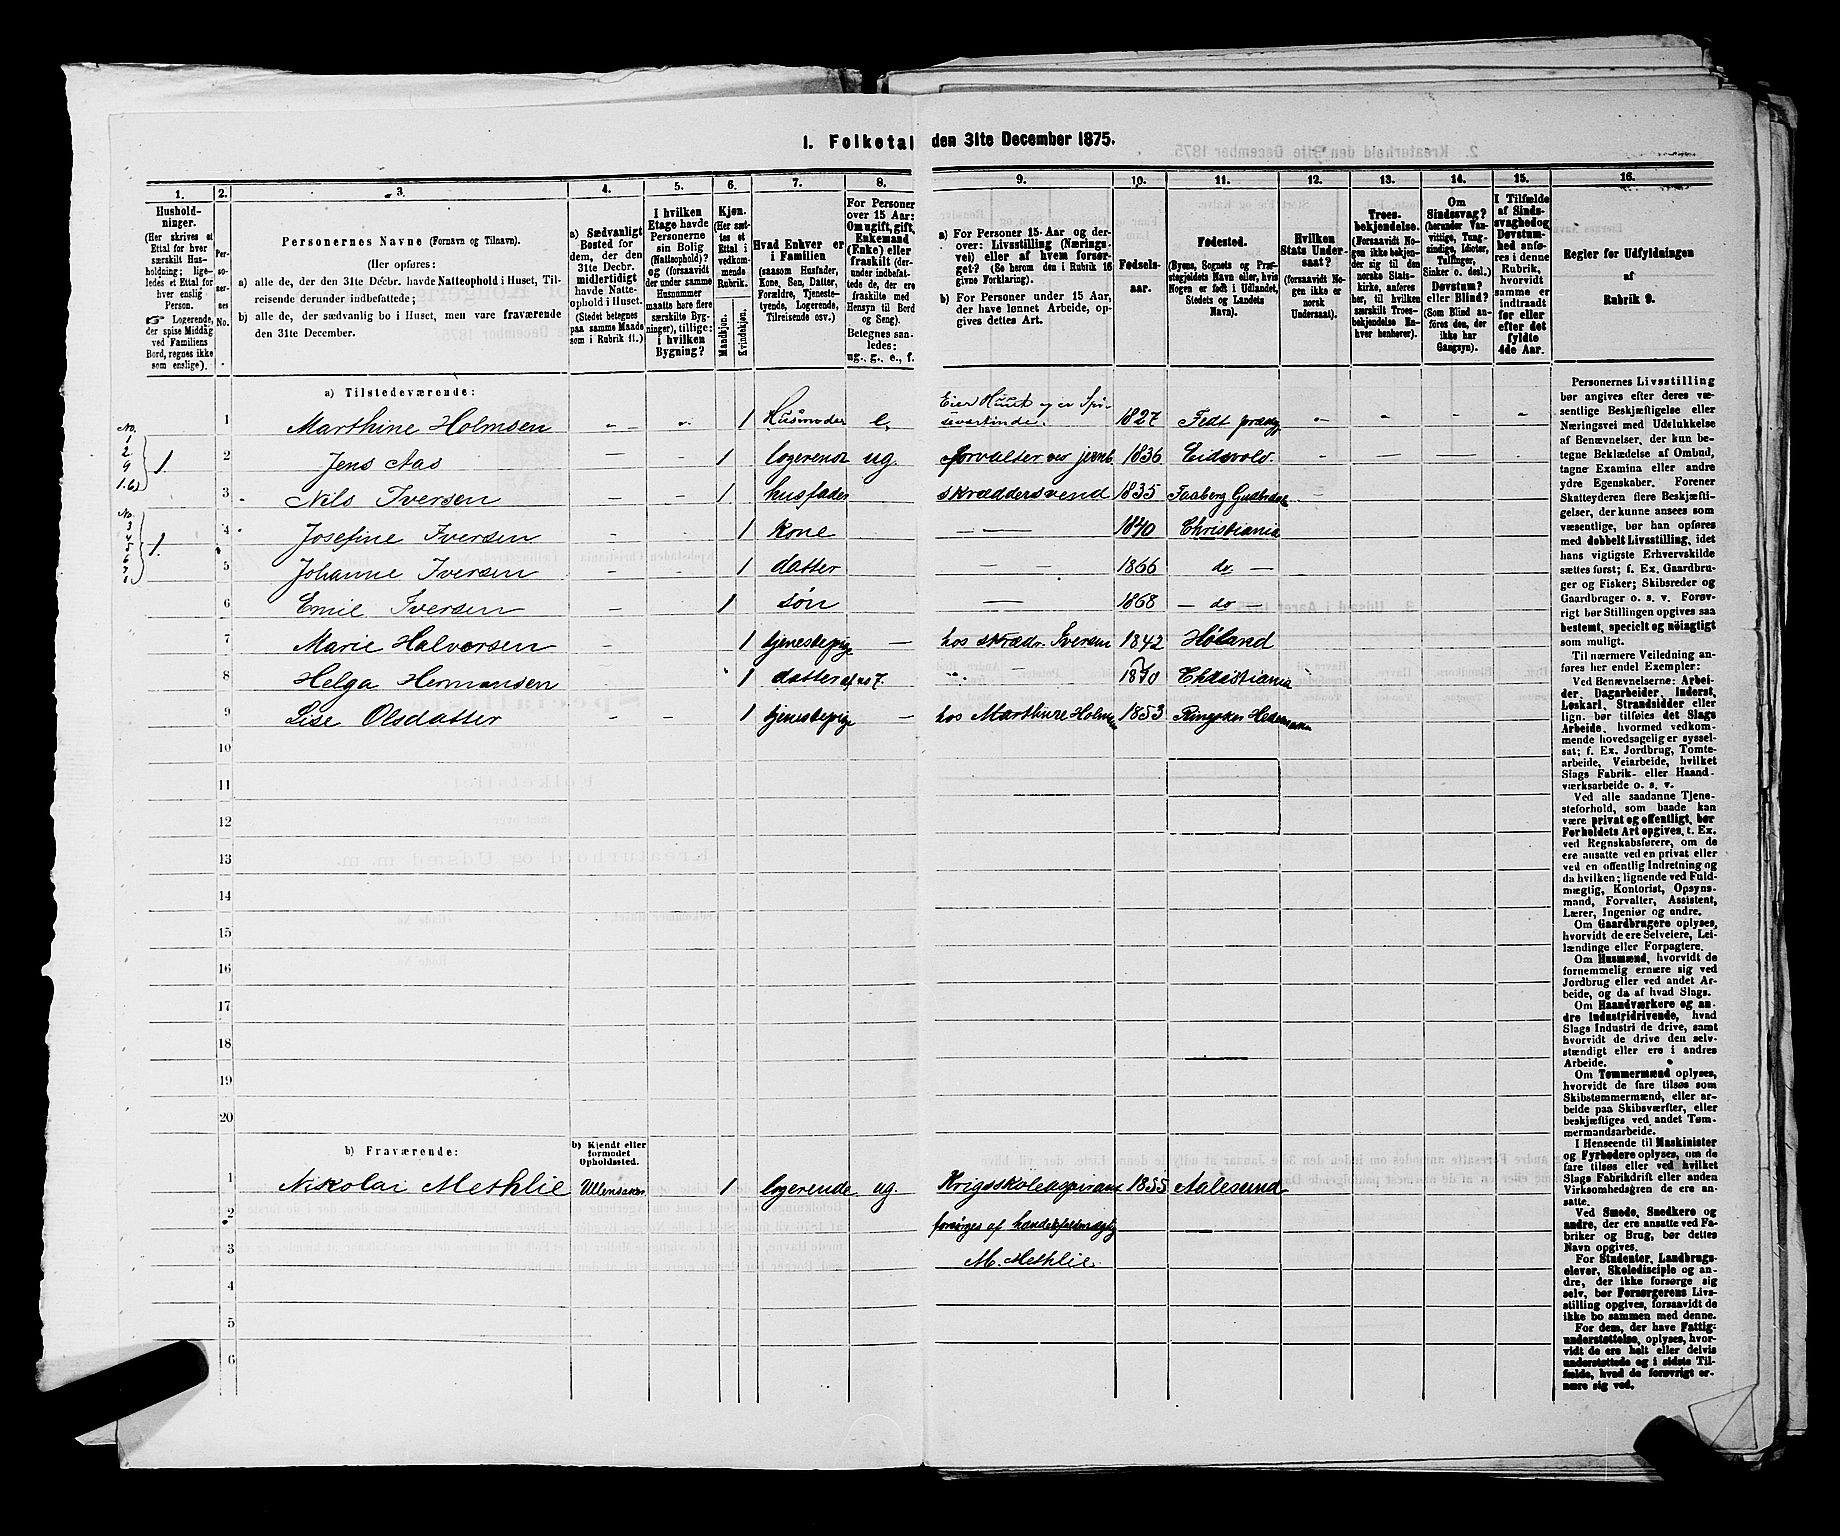 1. Folketal den 31te December 1875.
1. 2. 3. 4. 5. 6. 7. 8. 9. 10. 11. 12. 13. 14. 15. 16.
Husholdninger.
(Her skrives et
Ettal for hver
særskilt Husholdning;
ligeledes et Ettal for
hver enslig
Person.
☞ Logerende,
der spise Middag
ved Familiens
Bord, regnes ikke
som enslige).
Personernes No.
Personernes Navne (Fornavn og Tilnavn).
(Her opføres:
a) alle de, der den 31te Decbr. havde Natteophold i Huset, Tilreisende derunder indbefattede;
b) alle de, der sædvanlig bo i Huset, men vare fraværende
den 31te December.
a) Sædvanligt
Bosted for
dem, der den
31te Decbr.
midlertidigt
havde Natteophold i Huset.
(Stedet betegnes
paa samme Maade
som i Rubrik 11.)
I hvilken
Etage havde
Personerne
sin Bolig
(Natteophold)?
og (forsaavidt
der under samme
Husnummer
maatte høre flere
særskilte Bygninger), tillige:
i hvilken
Bygning?
Kjøn.
(Her sættes et
Ettal i
vedkommende
Rubrik.
Mandkjøn.
Kvindekjøn.
Hvad Enhver er
i Familien
(saasom Husfader,
Kone, Søn, Datter,
Forældre, Tjenestetyende, Logerende,
Tilreisende osv.)
For Personer
over 15 Aar:
Om ugift, gift,
Enkemand
(Enke) eller
fraskilt (derunder indbefattede de, der ere
fraskilte med
Hensyn til Bord
og Seng).
Betegnes saaledes:
ug., g., e., f.
a) For Personer 15 Aar og derover: Livsstilling (Næringsvei) eller af hvem forsørget? (Se herom den i Rubrik 16
givne Forklaring).
b) For Personer under 15 Aar,
der have lønnet Arbeide, opgives dettes Art.
Fødselsaar.
Fødested.
(Byens, Sognets og Præstegjeldets Navn eller, hvis
Nogen er født i Udlandet,
Stedets og Landets
Navn).
Hvilken
Stats Undersaat?
(forsaavidt Nogen ikke er
norsk
Undersaat).
Troesbekjendelse.
(Forsaavidt Nogen ikke bekjender sig til den
norske Statskirke, anføres
her, til hvilken
særskilt Troesbekjendelse Enhver henhører).
Om
Sindssvag?
(herunder Vanvittige, Tungsindige, Idioter,
Tullinger,
Sinker o. desl.)
Døvstum?
eller Blind?
(Som Blind anføres den, der
ikke har
Gangsyn).
I Tilfælde
af Sindssvaghed og
Døvstumhed anføres i denne
Rubrik,
hvorvidt
samme er
indtraadt
før eller
efter det
fyldte
4de Aar.
Regler for Udfyldningen
af
Rubrik 9.
a) Tilstedeværende:
No. 1 2 9 1.b) 1
No. 3 4 5 6 7 1.
1 Marthine Holmsen " " 1 Husmoder e. Eier Huset og er 1827 Fedt præstg " " " "
2 Jens Aas — — 1 logerende ug. forvalter ved jernb. 1836 Eidsvold. — — — —
3 Nils Iversen — — 1 husfader skræddersvend 1835 Faaberg Gudbrdal —
4 Josefine Iversen — — 1 kone — 1840 Christiania
5 Johanne Iversen — — 1 datter — — 1866 do —
6 Emil Iversen — — 1 søn — 1868 — do —
7 Marie Halvorsen — 1 tjenestepige — hos skrædr. Iversen 1842 Høland
8 Helga Hermansen — 1 datter af no 7. " — 1870 Christiania
9 Lise Olsdatter — — 1 tjenestepige — hos Marthine Holmsen 1853 Ringsker Hedemarken
10
11
12
13
14
15
16
17
18
19
20
b) Fraværende:
b) Kjendt eller
formodet
Opholdssted.
1 Nikolai Methlie Ullensaker 1 logerende ug. Krigsskoleaspirant 1855 Aalesund
2 forsørges af handelsfuldmægtig
3 M. Methlie.
4
5
6
Personernes Livsstilling
bør angives efter deres væsentlige Beskjæftigelse eller
Næringsvei med Udelukkelse
af Benævnelser, der kun betegne Beklædelse af Ombud,
tagne Examina eller andre
ydre Egenskaber. Forener
Skatteyderen flere Beskjæftigelser, der kunne ansees som
væsentlige, bør han opføres
med dobbelt Livsstilling, idet
hans vigtigste Erhvervskilde
sættes først; f. Ex. Gaardbruger og Fisker; Skibsreder og
Gaardbruger o. s. v. Forøvrigt bør Stillingen opgives saa
bestemt, specielt og nöiagtigt
som muligt.
Til nærmere Veiledning anføres her endel Exempler:
Ved Benævnelserne: Arbeider, Dagarbeider, Inderst,
Løskarl, Strandsidder eller
lign. bør tilføies det Slags
Arbeide, hvormed vedkommende hovedsagelig er sysselsat; f. Ex. Jordbrug, Tomtearbeide, Veiarbeide, hvilket
Slags Fabrik- eller Haandværksarbeide o. s. v.
Ved alle saadanne Tjenesteforhold, som baade kan
være privat og offentligt, bør
Forholdets Art opgives, t. Ex.
ved Regnskabsførere, om de
ere ansatte ved en privat eller
ved en offentlig Indretning og
da hvilken; lignende ved Fuldmægtig, Kontorist, Opsynsmand, Forvalter, Assistent,
Lærer, Ingeniør og andre.
Om Gaardbrugere oplyses,
hvorvidt de ere Selveiere, Leilændinge eller Forpagtere.
Om Husmænd, hvorvidt de
fornemmelig ernære sig ved
Jordbrug eller ved andet Arbeide, og da af hvad Slags.
Om Haandværkere og andre Industridrivende, hvad
Slags Industri de drive, samt
hvorvidt de drive den selvstændigt eller ere i andres
Arbeide.
Om Tømmermænd oplyses,
hvorvidt de fare tilsøs som
Skibstømmermænd, eller arbeide paa Skibsværfter, eller
beskjæftiges ved andet Tømmermandsarbeide.
I Henseende til Maskinister
og Fyrbødere oplyses, om de
fare tilsøs eller ved hvilket
Slags Fabrikdrift eller anden
Virksomhedsgren de ere ansatte.
Ved Smede, Snedkere og
andre, der ere ansatte ved Fabriker og Brug, bør dettes
Navn opgives.
For Studenter, Landbrugselever, Skoledisciple og andre, der ikke forsørge sig
selv, bør Forsørgerens Livsstilling opgives, forsaavidt de
ikke bo sammen med denne.
For dem, der have Fattigunderstøttelse, oplyses, hvorvidt de ere helt eller delvis
understøttede og i sidste Tilfælde, hvad de forøvrigt ernære sig ved.